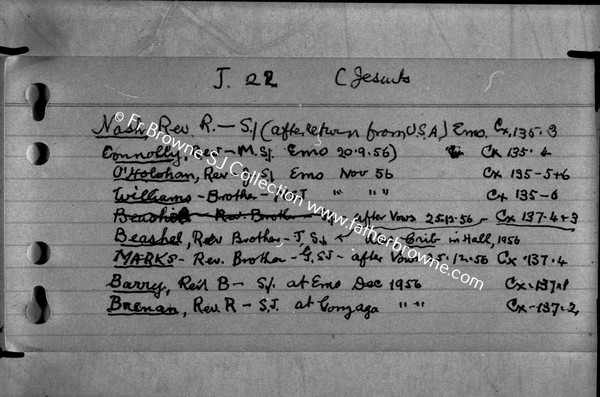 J. 22 (Jesuits
Nash, Rev. R. — S.J. (after return from U.S.A) Emo. Cx. 135. 3
Connolly, Rev — M. S.J. Emo 20.9.56) Cx 135. 4
O'Holohan, Rev J. S.J. Emo Nov 56 Cx 135-5+6
Williams - Brother - S.J " " " Cx 135-6
Rev. Brother after Vows 25.12.56 - Cx 137.4+3
Beashel, Rev Brother - J, S.J. Crib in Hall, 1956
MARKS - Rev. Brother - G. S.J - after Vows 25.12.56 Cx 137.4
Barry, Rev B - S.J. at Emo Dec 1956 Cx. 137.1
Brenan, Rev. R - S.J. at Gonzaga " " Cx - 137.2
© Fr. Browne SJ Collection www.fatherbrowne.com